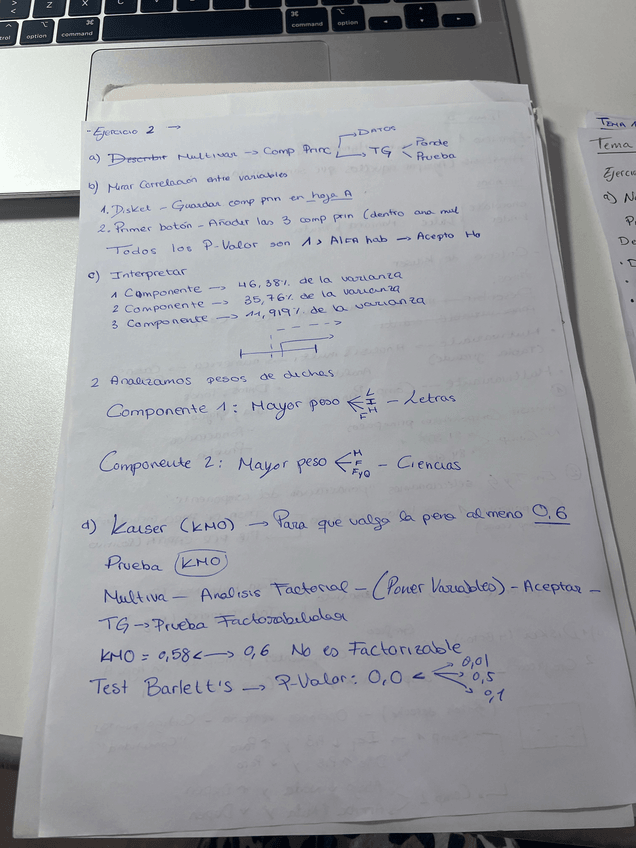 Z X
⌘ command
⌥ option
control option command
- Ejercicio 2 →
a) Describir Multivar → Comp Princ → DATOS
→ TG < Ponde
Prueba
b) Mirar Correlación entre variables
1. Disket - Guardar comp prin en hoja A
2. Primer botón - Añadir las 3 comp prin (dentro ana mul
Todos los P-Valor son 1 > Alfa hab → Acepto Ho
c) Interpretar
1 Componente → 46,38% de la varianza
2 Componente → 35,76% de la varianza
3 Componente → 11,919% de la varianza
2 Analizamos pesos de dichas
Componente 1: Mayor peso < L I H F - Letras
Componente 2: Mayor peso < M F FyQ - Ciencias
d) Kaiser (KMO) → Para que valga la pena al meno 0,6
Prueba KMO
Multiva - Analisis Factorial - (Poner Variables) - Aceptar -
TG → Prueba Factorabilidad
KMO = 0,58 < → 0,6 No es Factorizable
Test Barlett's → P-Valor: 0,0 < 0,01
0,5
0,1
TEMA 1
Tema
Ejercic
a) N